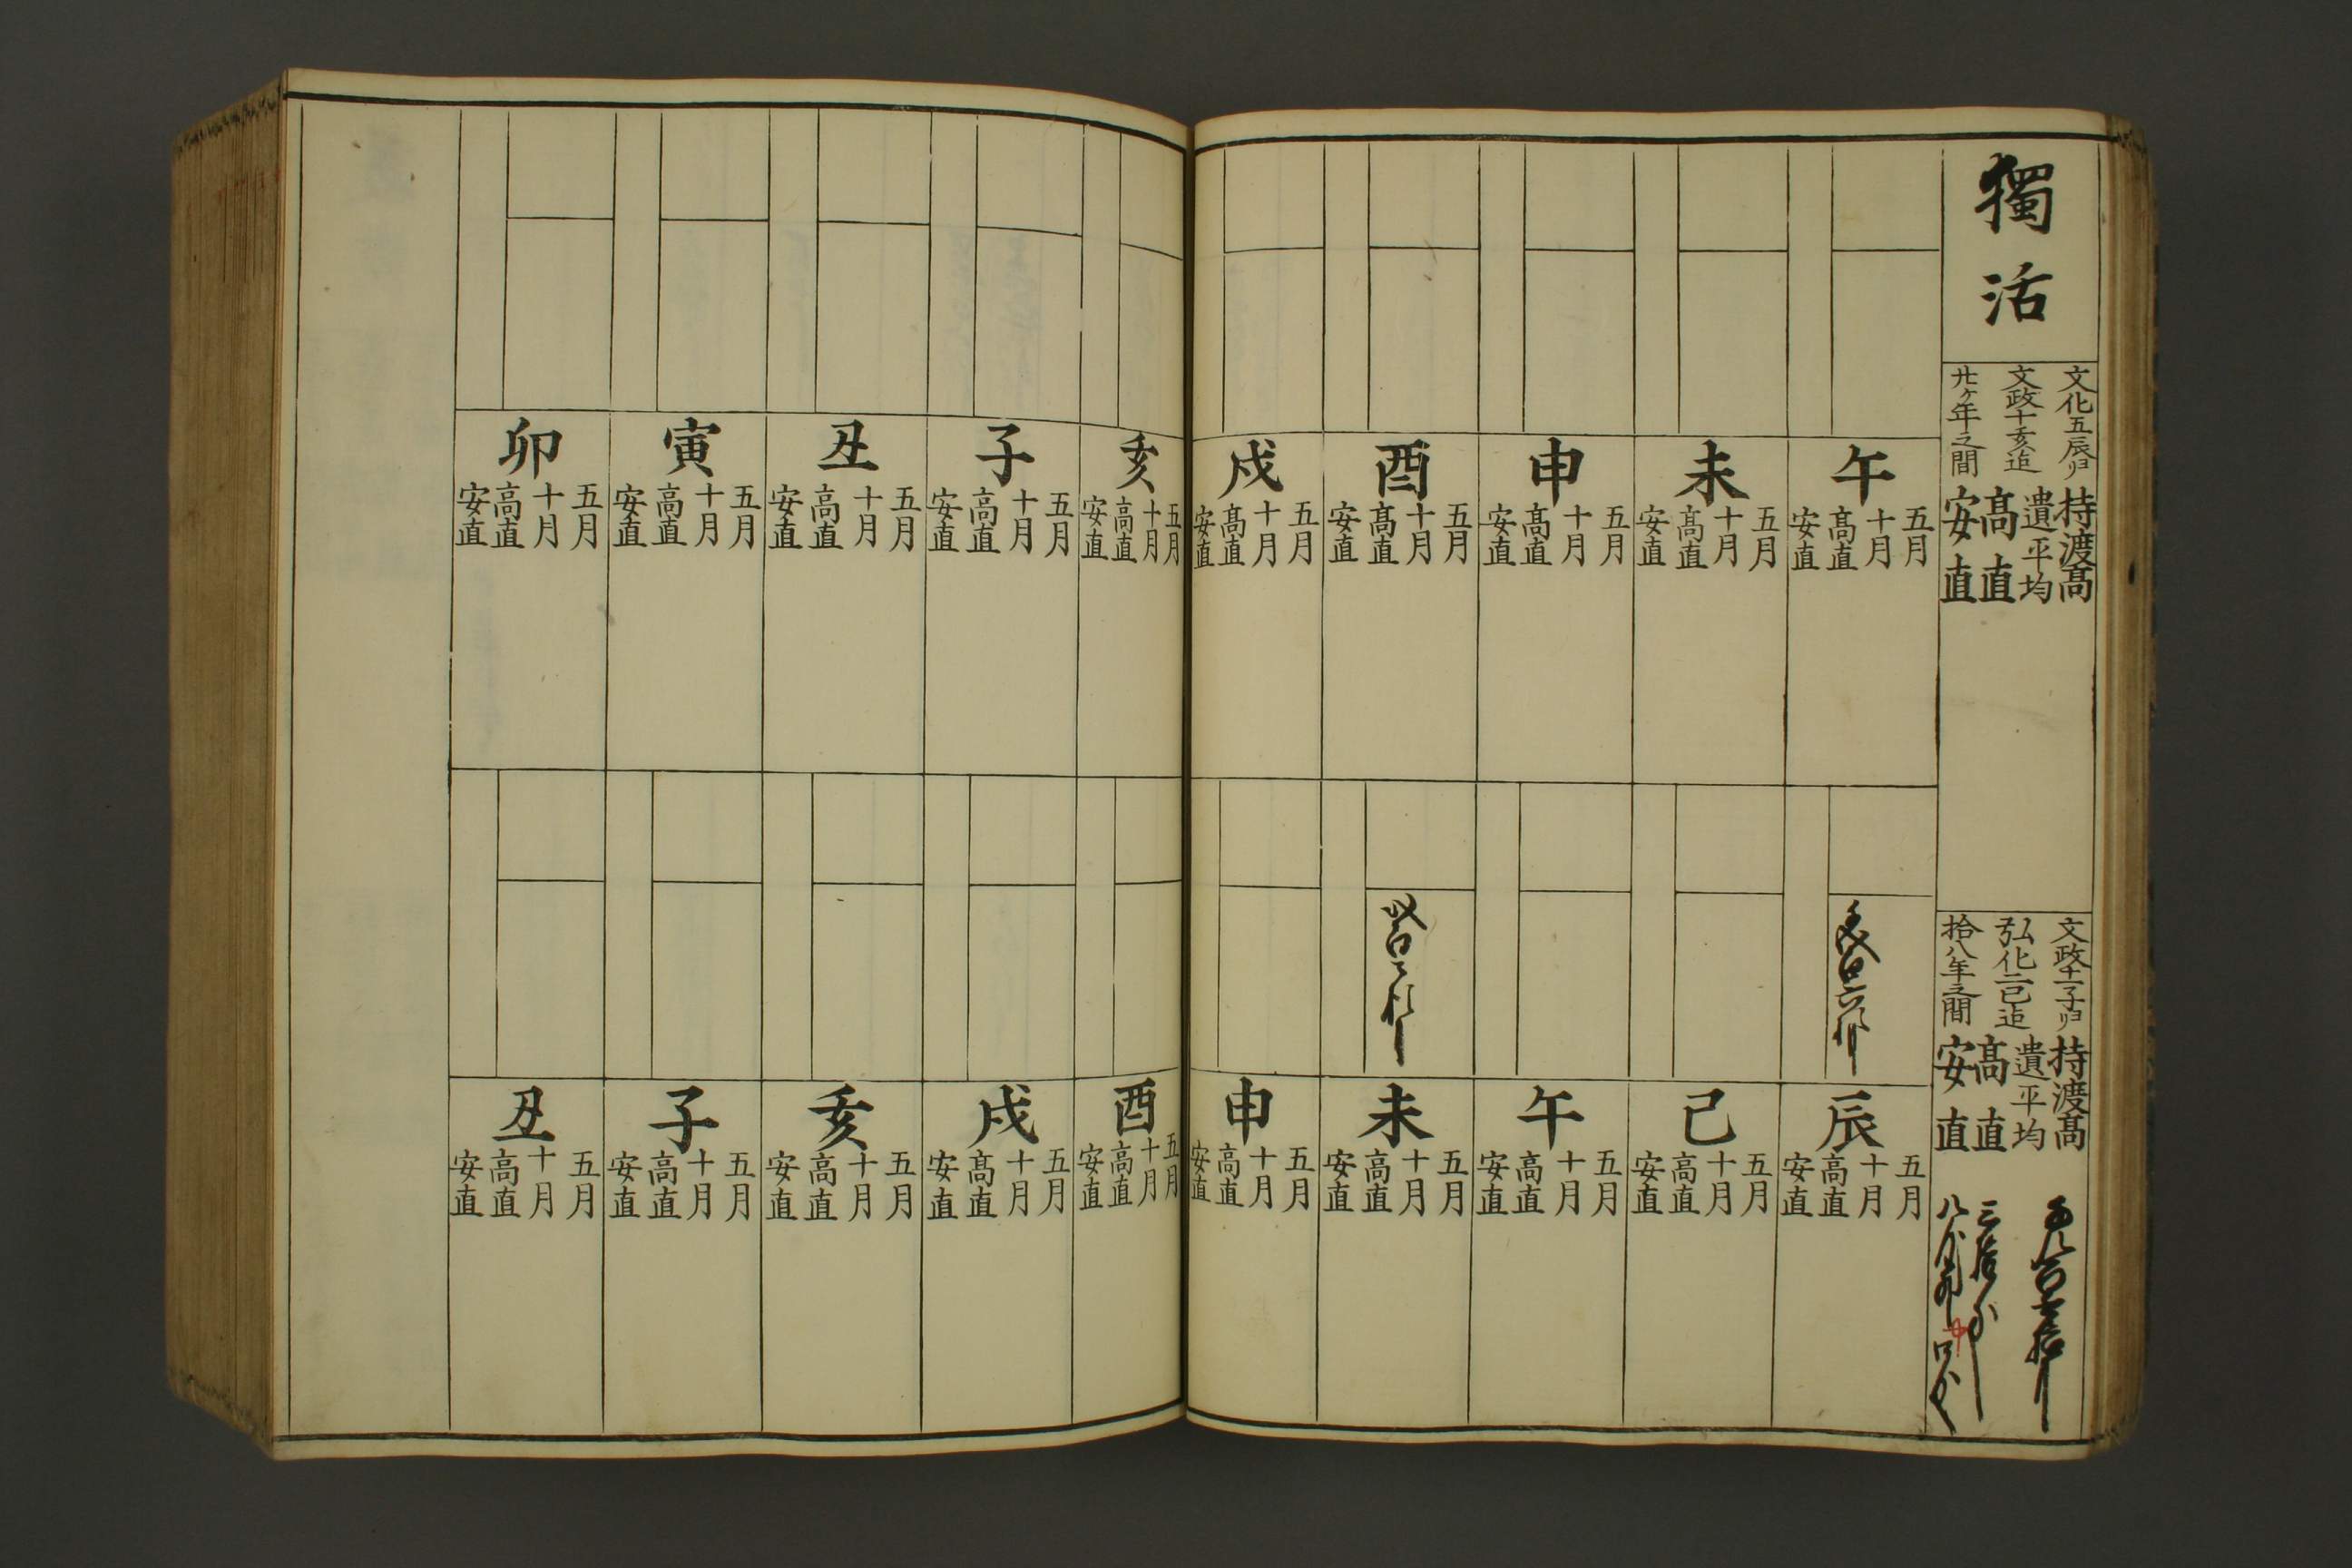 獨活
文化五辰ゟ
文政十亥迠
廿ケ年之間
持渡髙
遺平均
髙直
安直
文政十一子ゟ
弘化二巳迠
拾八年之間
持渡髙
遺平均
髙直
安直
午
五月
十月
髙直
安直
未
五月
十月
髙直
安直
申
五月
十月
髙直
安直
酉
五月
十月
髙直
安直
戌
五月
十月
髙直
安直
亥
五月
十月
高直
安直
子
五月
十月
高直
安直
丑
五月
十月
高直
安直
寅
五月
十月
高直
安直
卯
五月
十月
高直
安直
辰
五月
十月
高直
安直
巳
五月
十月
高直
安直
午
五月
十月
高直
安直
未
五月
十月
高直
安直
申
五月
十月
高直
安直
酉
五月
十月
高直
安直
戌
五月
十月
髙直
安直
亥
五月
十月
高直
安直
子
五月
十月
高直
安直
丑
五月
十月
高直
安直